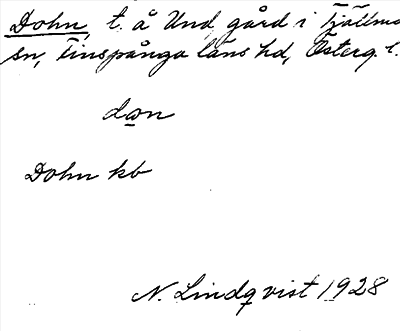 Dohn, t. å Und, gård i Tjällmo
sn, Finspånga läns hd, Österg. l.
don
Dohn kb
N. Lindqvist 1928